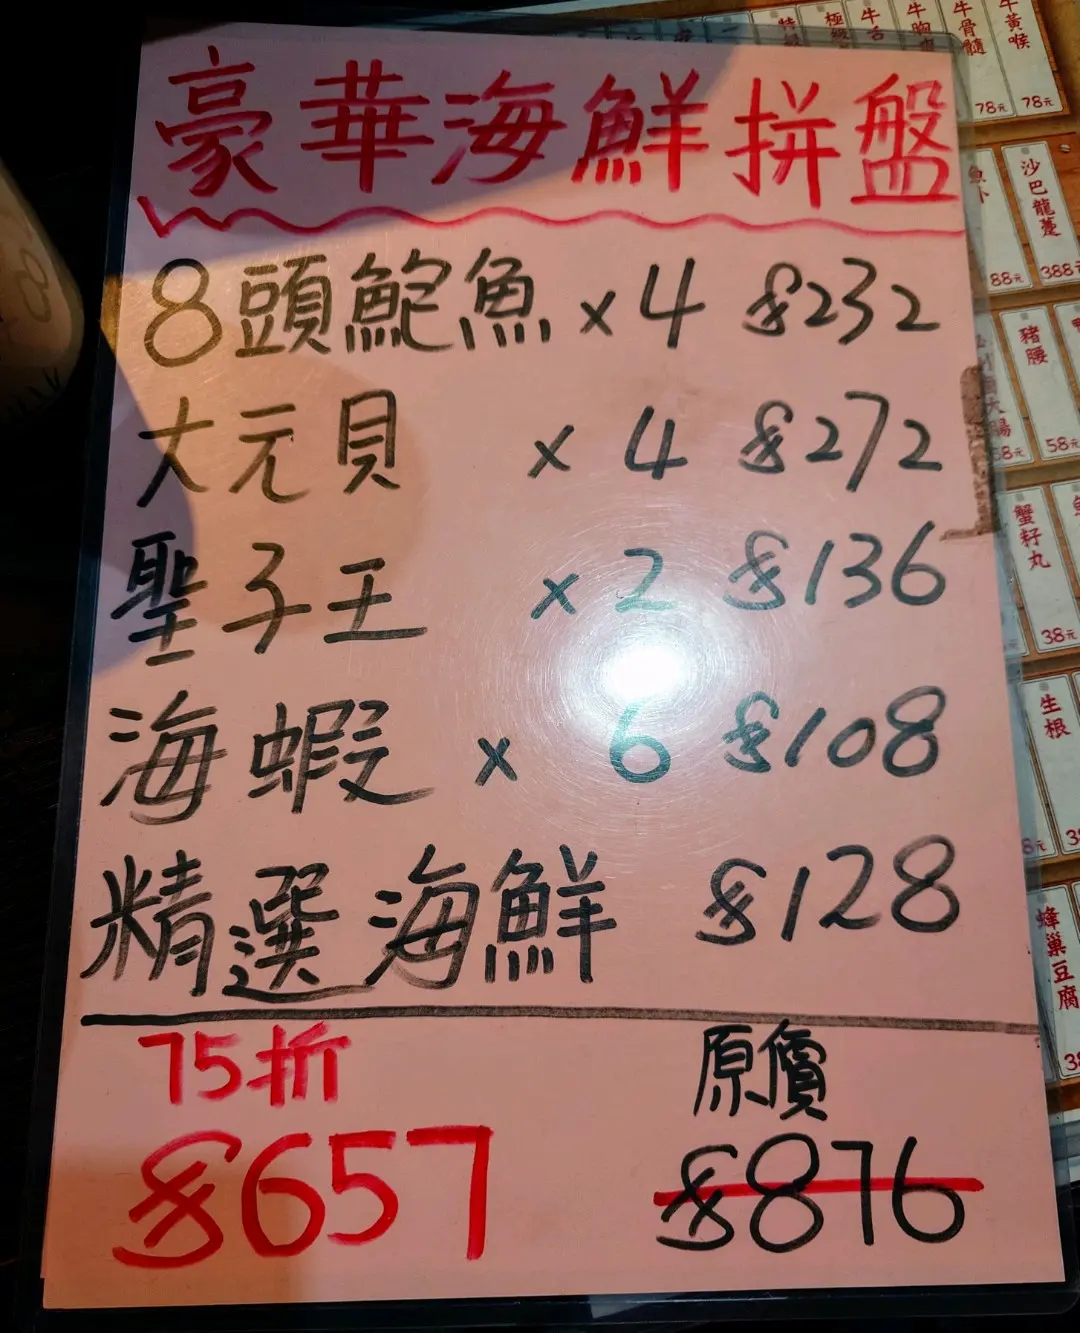 豪華海鮮拼盤
8頭鮑魚 x 4 $232
大元貝 x 4 $272
聖子王 x 2 $136
海蝦 x 6 $108
精選海鮮 $128
75折
原價
$657
$876
牛舌
牛胸爽
牛骨髓
78元
牛黃喉
78元
88元
沙巴龍躉
388元
豬腰
58元
蟹籽丸
38元
生根
蜂巢豆腐